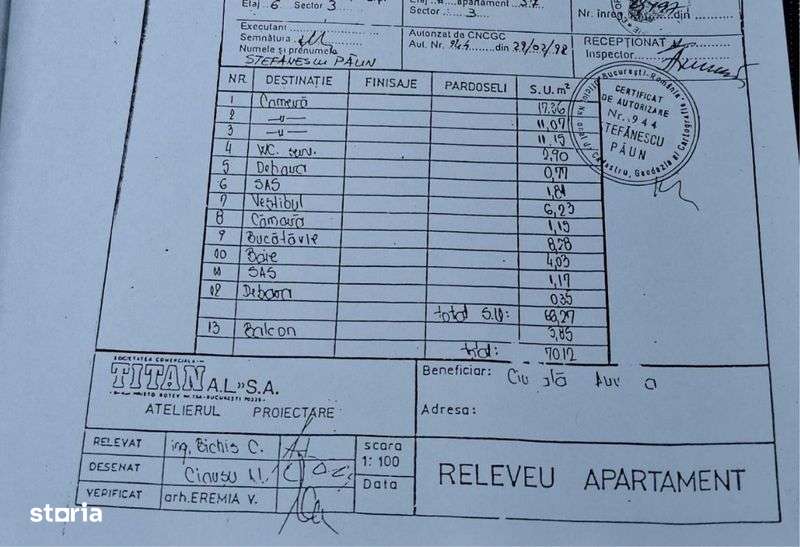 Etaj 6 Sector 3
Etaj apartament 37
Sector 3
Nr. înreg din
Executant
Semnătura
Numele și prenumele
STEFĂNESCU PĂUN
Autorizat de CNCGC
Aut. Nr. 944 din 29/02/98
RECEPTIONAT
Inspector
București-România
CERTIFICAT
DE AUTORIZARE
Nr. 944
STEFĂNESCU
PĂUN
Cadastru, Geodezie și Cartografie
NR. DESTINAȚIE FINISAJE PARDOSELI S.U. m²
1 Cameră 17.36
2 —"— 11,07
3 —"— 11,15
4 W.C. serv. 2,90
5 Debara 0,77
6 SAS 1,81
7 Vestibul 6,23
8 Cămară 1,15
9 Bucătărie 8,28
10 Baie 4,03
11 SAS 1,17
12 Debara 0,35
total S.U: 66,27
13 Balcon 3,85
total: 70,12
SOCIETATEA COMERCIALĂ
TITAN A.L» S.A.
ATELIERUL PROIECTARE
Beneficiar:
Adresa:
RELEVAT ing. Bichis C.
DESENAT Cinusu M.
VERIFICAT arh. EREMIA V.
scara
1:100
Data
RELEVEU APARTAMENT
storia